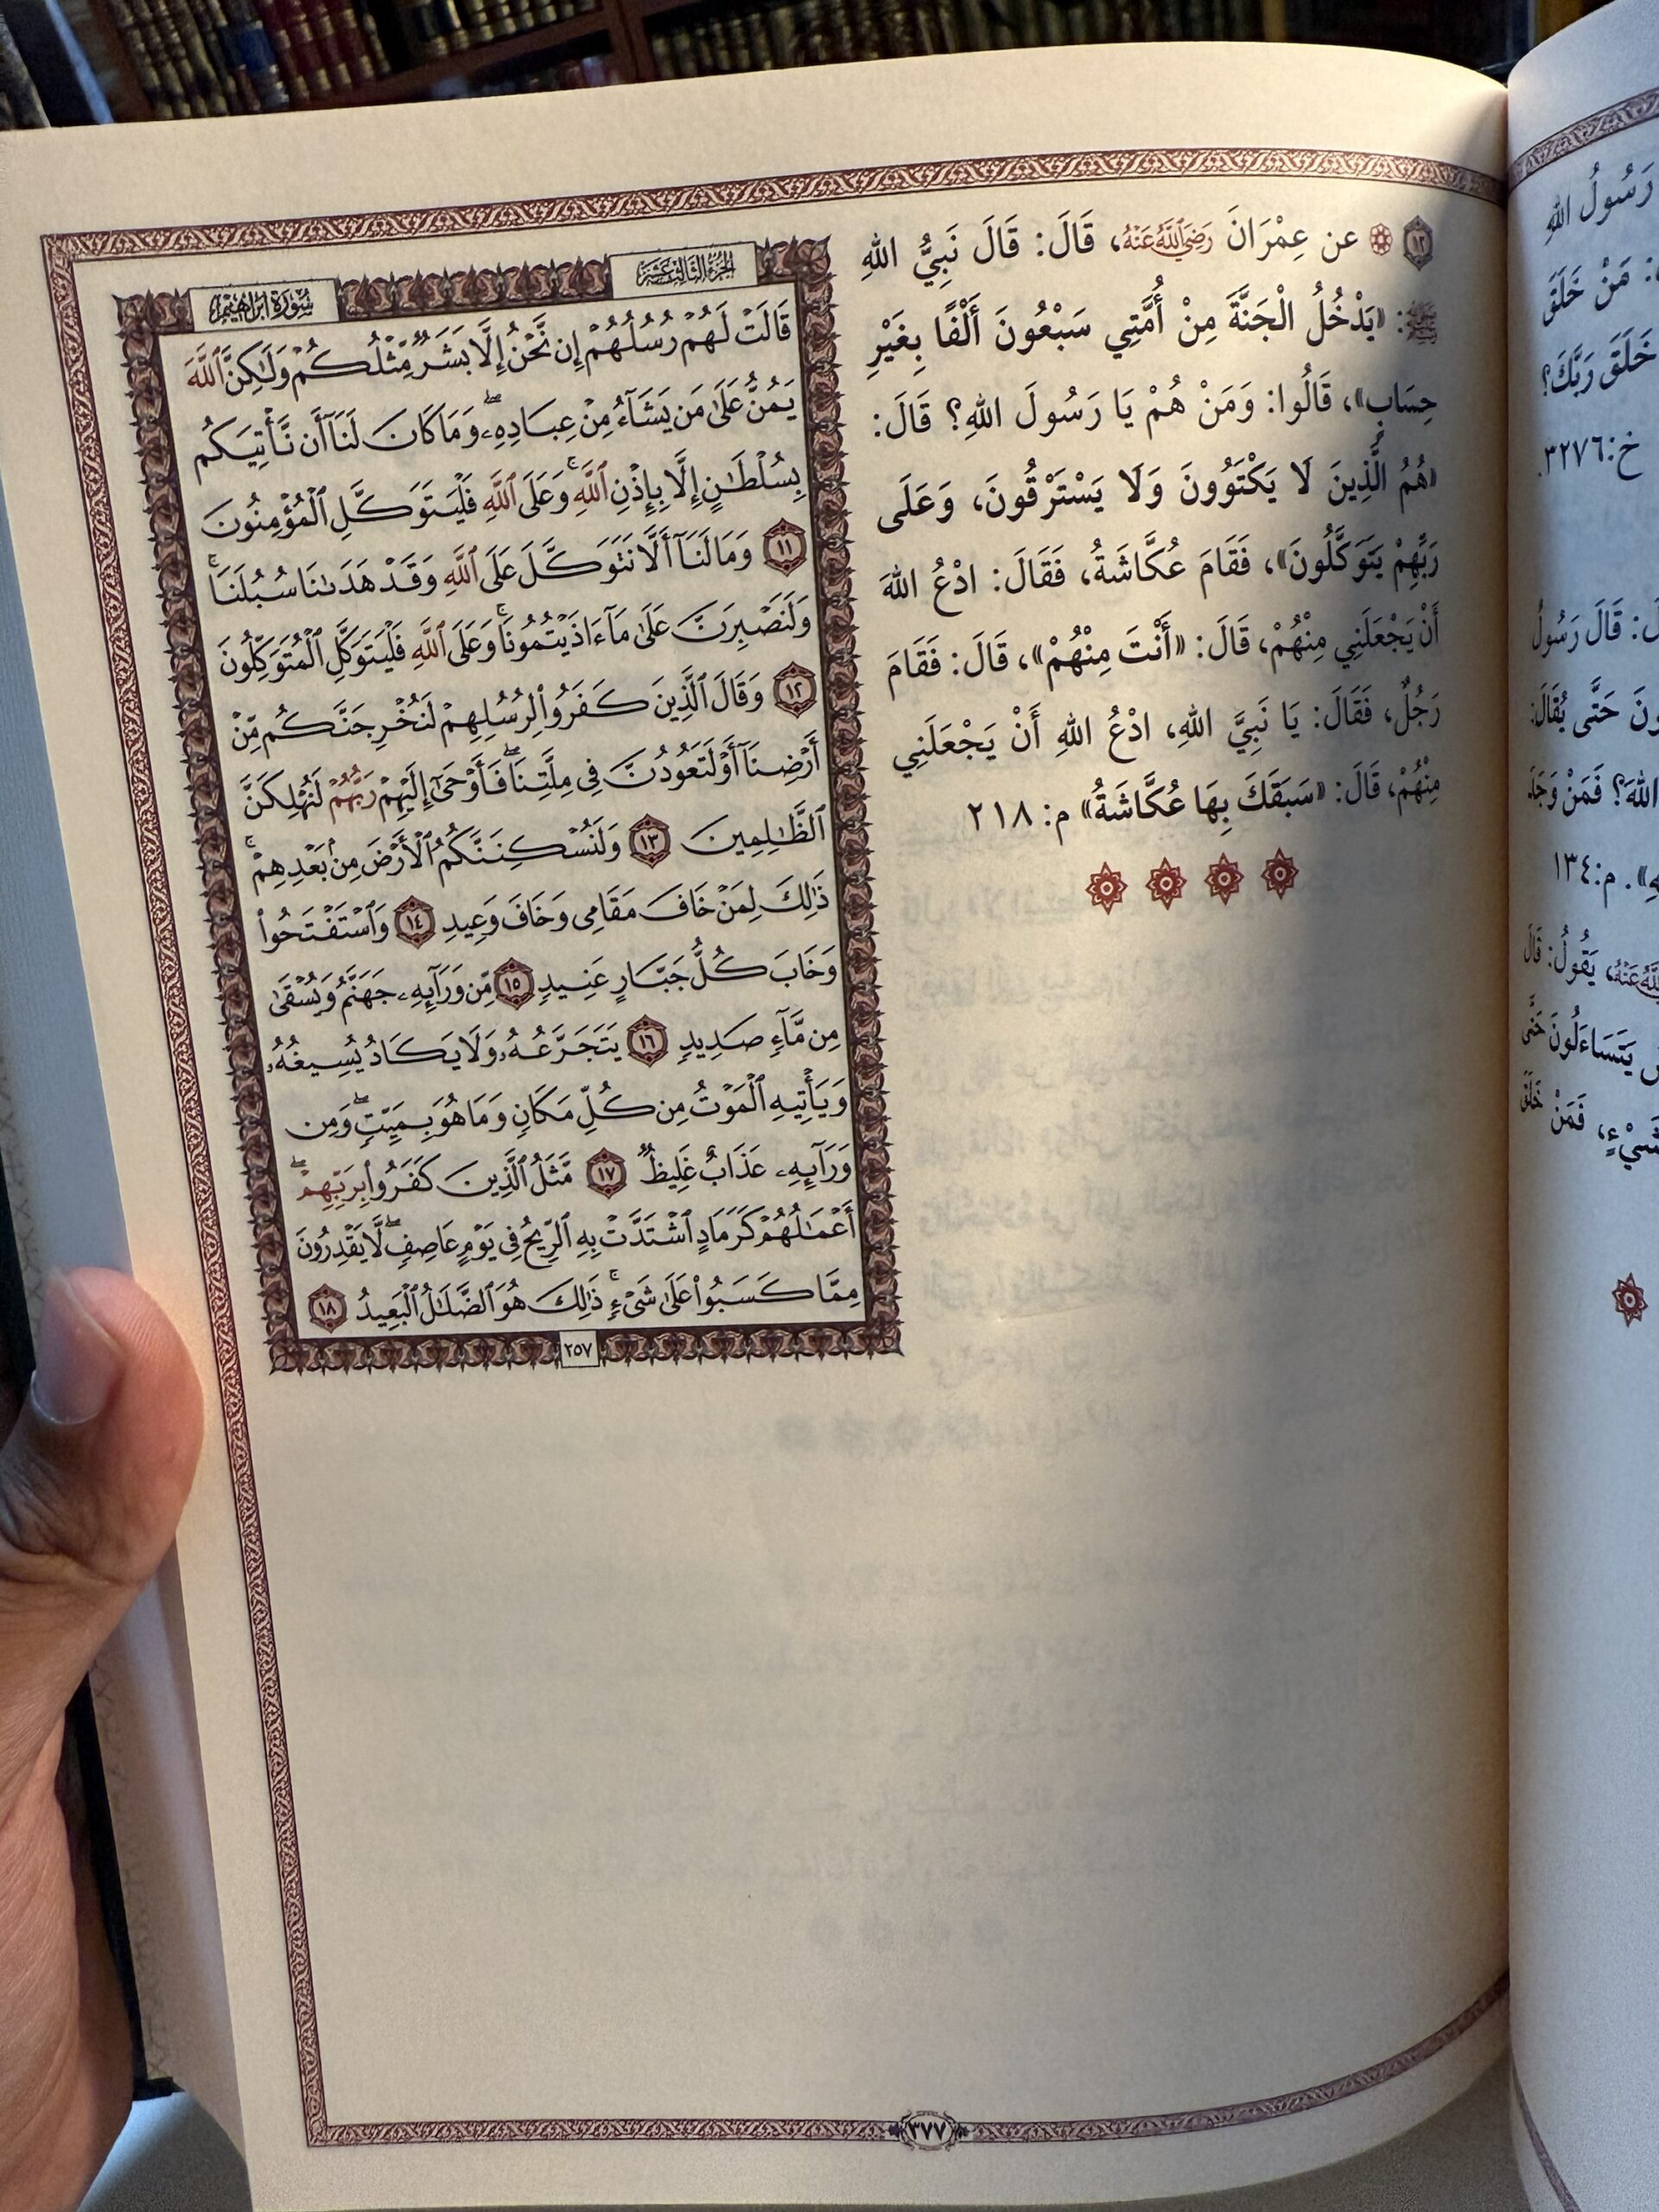 ١٢ عن عِمْرَانَ رَضِيَ ٱللَّهُ عَنْهُ، قَالَ: قَالَ نَبِيُّ اللهِ
ﷺ: «يَدْخُلُ الْجَنَّةَ مِنْ أُمَّتِي سَبْعُونَ أَلْفًا بِغَيْرِ
حِسَابٍ»، قَالُوا: وَمَنْ هُمْ يَا رَسُولَ اللهِ؟ قَالَ:
«هُمُ الَّذِينَ لَا يَكْتَوُونَ وَلَا يَسْتَرْقُونَ، وَعَلَى
رَبِّهِمْ يَتَوَكَّلُونَ»، فَقَامَ عُكَّاشَةُ، فَقَالَ: ادْعُ اللهَ
أَنْ يَجْعَلَنِي مِنْهُمْ، قَالَ: «أَنْتَ مِنْهُمْ»، قَالَ: فَقَامَ
رَجُلٌ، فَقَالَ: يَا نَبِيَّ اللهِ، ادْعُ اللهِ أَنْ يَجْعَلَنِي
مِنْهُمْ، قَالَ: «سَبَقَكَ بِهَا عُكَّاشَةُ» م: ٢١٨
الجزء الثالث عشر
سورة إبراهيم
قَالَتْ لَهُمْ رُسُلُهُمْ إِن نَّحْنُ إِلَّا بَشَرٌ مِّثْلُكُمْ وَلَٰكِنَّ ٱللَّهَ
يَمُنُّ عَلَىٰ مَن يَشَآءُ مِنْ عِبَادِهِۦۖ وَمَا كَانَ لَنَآ أَن نَّأْتِيَكُم
بِسُلْطَٰنٍ إِلَّا بِإِذْنِ ٱللَّهِۚ وَعَلَى ٱللَّهِ فَلْيَتَوَكَّلِ ٱلْمُؤْمِنُونَ
١١ وَمَا لَنَآ أَلَّا نَتَوَكَّلَ عَلَى ٱللَّهِ وَقَدْ هَدَىٰنَا سُبُلَنَاۚ
وَلَنَصْبِرَنَّ عَلَىٰ مَآ ءَاذَيْتُمُونَاۚ وَعَلَى ٱللَّهِ فَلْيَتَوَكَّلِ ٱلْمُتَوَكِّلُونَ
١٢ وَقَالَ ٱلَّذِينَ كَفَرُوا۟ لِرُسُلِهِمْ لَنُخْرِجَنَّكُم مِّنْ
أَرْضِنَآ أَوْ لَتَعُودُنَّ فِى مِلَّتِنَاۖ فَأَوْحَىٰٓ إِلَيْهِمْ رَبُّهُمْ لَنُهْلِكَنَّ
ٱلظَّٰلِمِينَ ١٣ وَلَنُسْكِنَنَّكُمُ ٱلْأَرْضَ مِنۢ بَعْدِهِمْۚ
ذَٰلِكَ لِمَنْ خَافَ مَقَامِى وَخَافَ وَعِيدِ ١٤ وَٱسْتَفْتَحُوا۟
وَخَابَ كُلُّ جَبَّارٍ عَنِيدٍ ١٥ مِّن وَرَآئِهِۦ جَهَنَّمُ وَيُسْقَىٰ
مِن مَّآءٍ صَدِيدٍ ١٦ يَتَجَرَّعُهُۥ وَلَا يَكَادُ يُسِيغُهُۥ
وَيَأْتِيهِ ٱلْمَوْتُ مِن كُلِّ مَكَانٍ وَمَا هُوَ بِمَيِّتٍۖ وَمِن
وَرَآئِهِۦ عَذَابٌ غَلِيظٌ ١٧ مَّثَلُ ٱلَّذِينَ كَفَرُوا۟ بِرَبِّهِمْۖ
أَعْمَٰلُهُمْ كَرَمَادٍ ٱشْتَدَّتْ بِهِ ٱلرِّيحُ فِى يَوْمٍ عَاصِفٍۖ لَّا يَقْدِرُونَ
مِمَّا كَسَبُوا۟ عَلَىٰ شَىْءٍۚ ذَٰلِكَ هُوَ ٱلضَّلَٰلُ ٱلْبَعِيدُ ١٨
٢٥٧
٣٧٧
رَسُولُ اللهِ
مَنْ خَلَقَ
خَلَقَ رَبَّكَ؟
خ: ٣٢٧٦.
قَالَ رَسُولُ
حَتَّى يُقَالَ:
اللهَ؟ فَمَنْ وَجَدَ
م: ١٣٤
يَقُولُ: قَالَ
يَتَسَاءَلُونَ حَتَّى
شَيْءٍ، فَمَنْ خَلَقَ